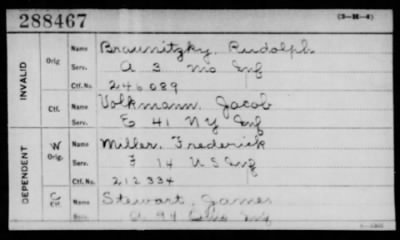 288467 (3-24-4)
INVALID Orig. Name Braunitzky, Rudolph
Serv. A 3 Mo Inf
Ctf. No. 246089
Ctf. Name Volkmann, Jacob
Serv. E 41 NY Inf
DEPENDENT W Orig. Name Miller, Frederick
Serv. F 14 U S Inf
Ctf. No. 212334
C Ctf. Name Stewart, James
94 Ohio Inf